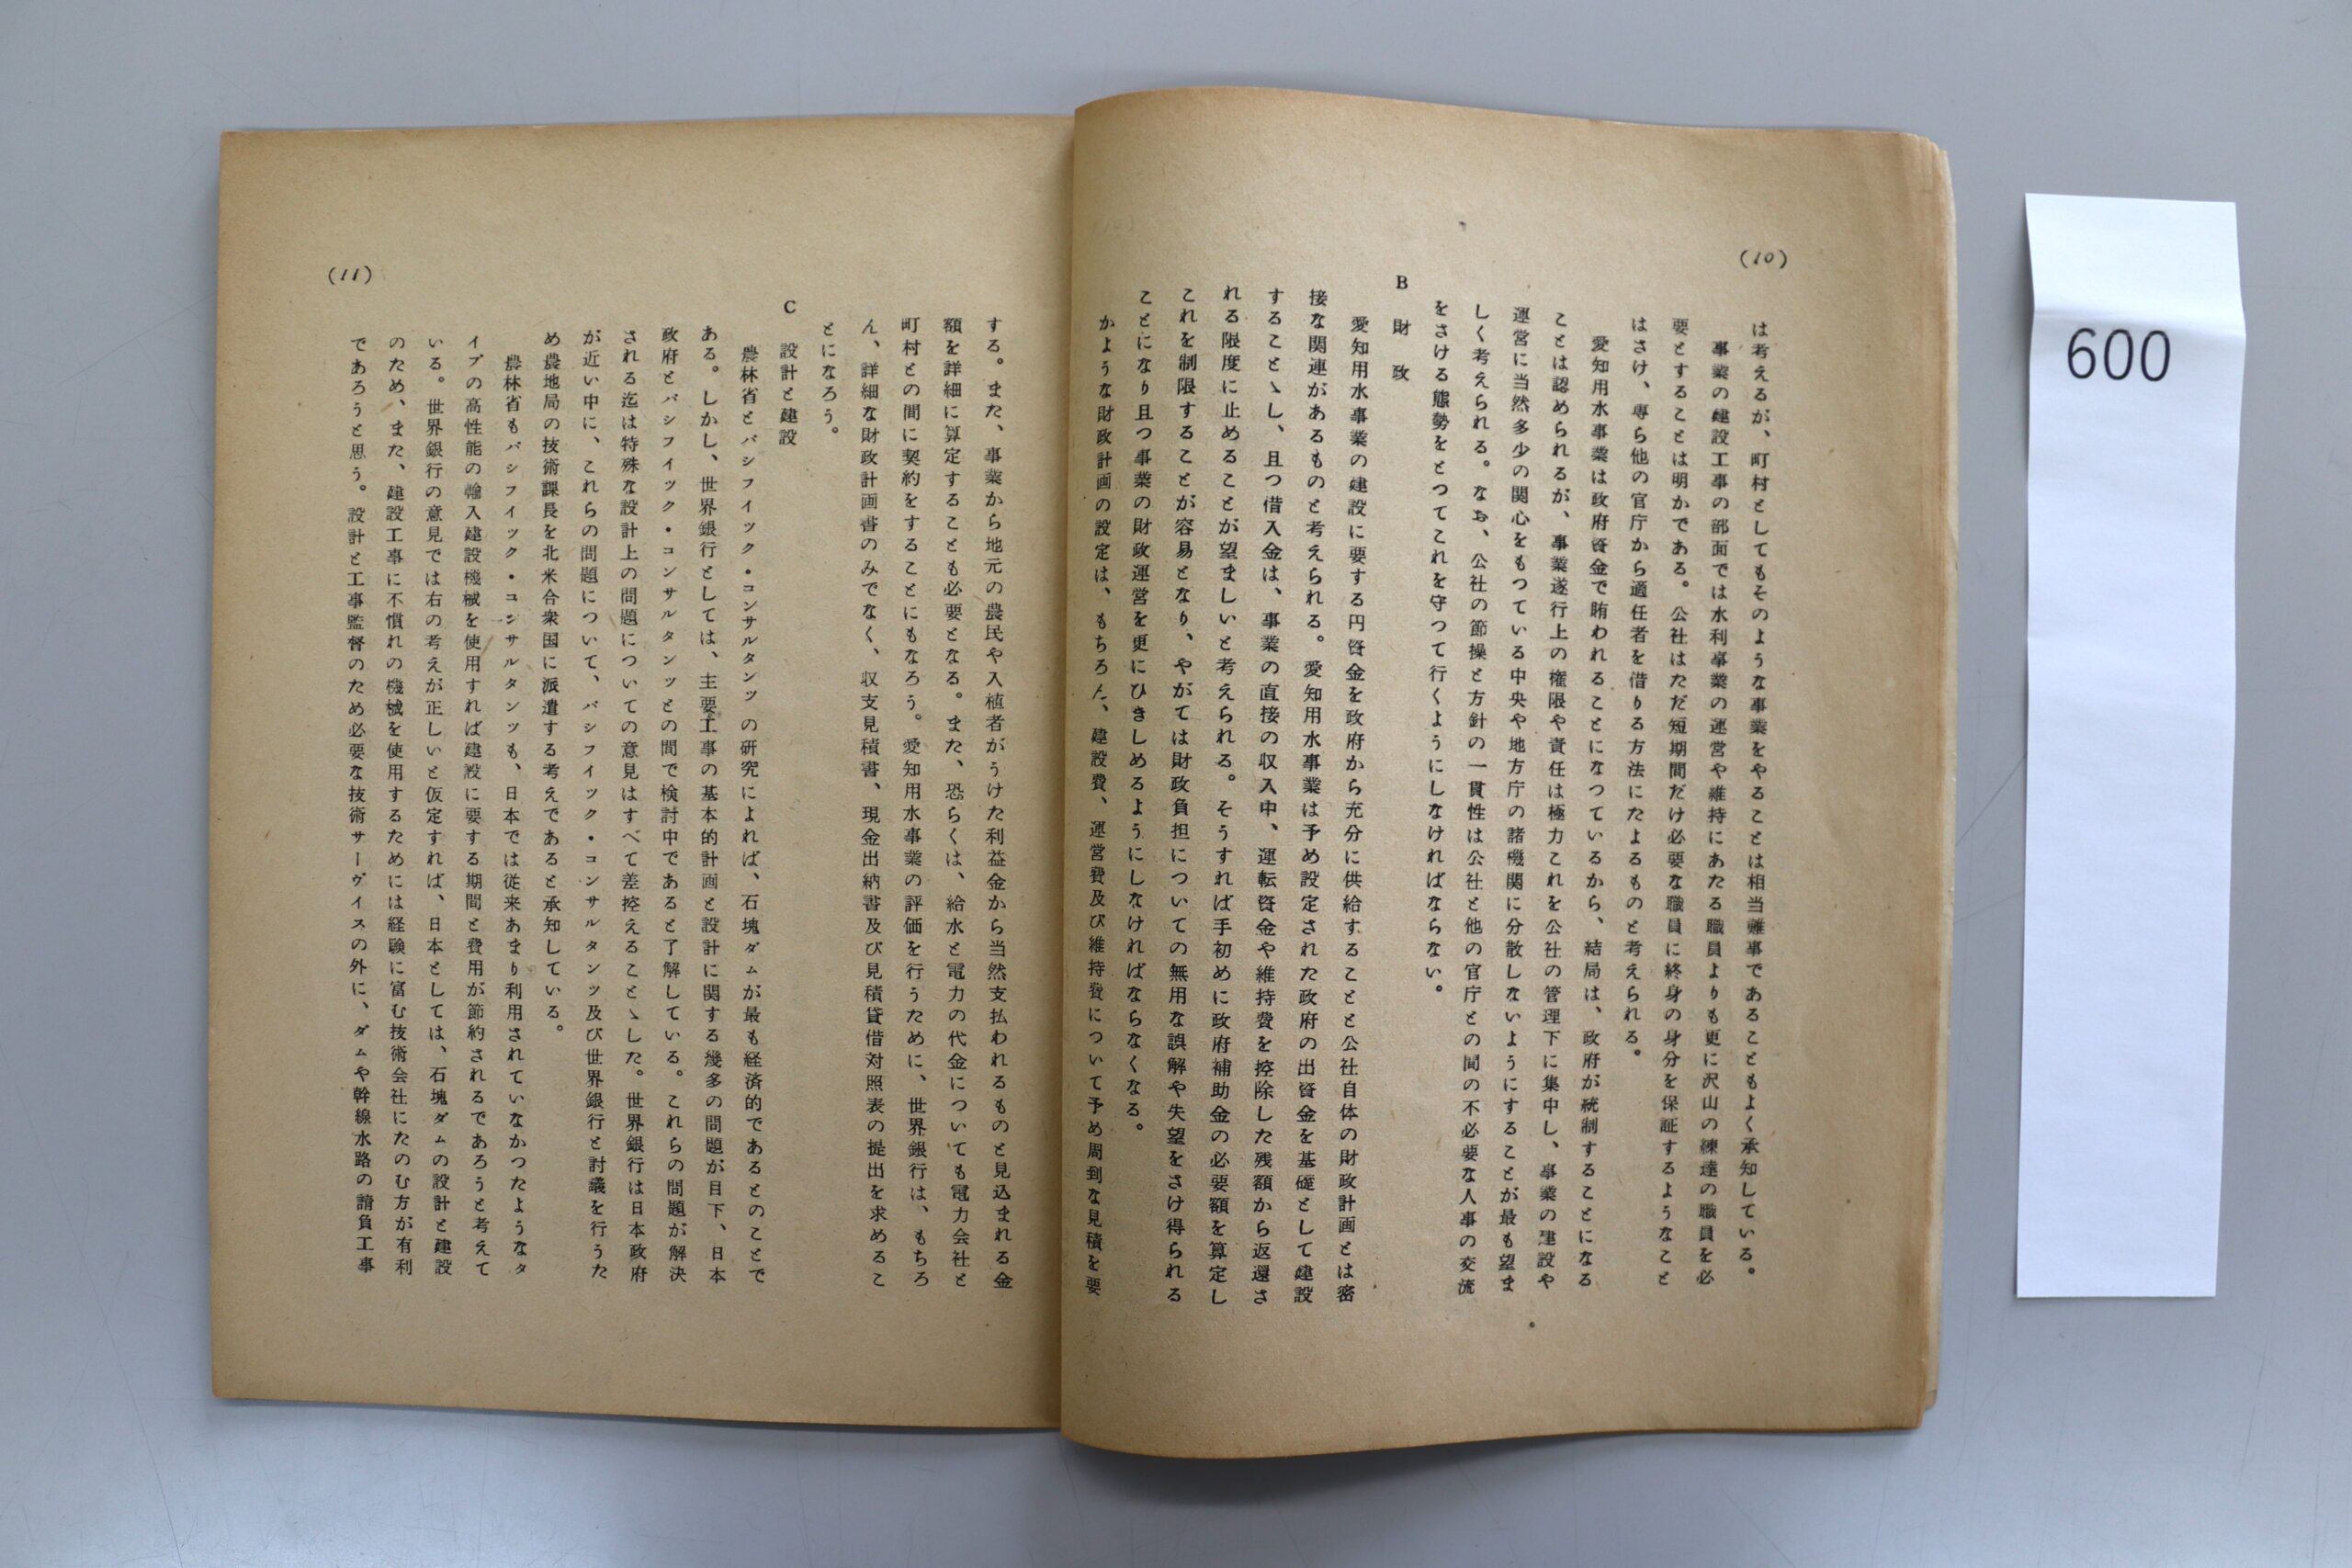 (10)
は考えるが、町村としてもそのような事業をやることは相当難事であることもよく承知している。
事業の建設工事の部面では水利事業の運営や維持にあたる職員よりも更に沢山の練達の職員を必
要とすることは明かである。公社はただ短期間だけ必要な職員に終身の身分を保証するようなこと
はさけ、専ら他の官庁から適任者を借りる方法にたよるものと考えられる。
愛知用水事業は政府資金で賄われることになつているから、結局は、政府が統制することになる
ことは認められるが、事業遂行上の権限や責任は極力これを公社の管理下に集中し、事業の建設や
運営に当然多少の関心をもつている中央や地方庁の諸機関に分散しないようにすることが最も望ま
しく考えられる。なお、公社の節操と方針の一貫性は公社と他の官庁との間の不必要な人事の交流
をさける態勢をとつてこれを守つて行くようにしなければならない。
B 財政
愛知用水事業の建設に要する円資金を政府から充分に供給することと公社自体の財政計画とは密
接な関連があるものと考えられる。愛知用水事業は予め設定された政府の出資金を基礎として建設
することゝし、且つ借入金は、事業の直接の収入中、運転資金や維持費を控除した残額から返還さ
れる限度に止めることが望ましいと考えられる。そうすれば手初めに政府補助金の必要額を算定し
これを制限することが容易となり、やがては財政負担についての無用な誤解や失望をさけ得られる
ことになり且つ事業の財政運営を更にひきしめるようにしなければならなくなる。
かような財政計画の設定は、もちろん、建設費、運営費及び維持費について予め周到な見積を要
(11)
する。また、事業から地元の農民や入植者がうけた利益金から当然支払われるものと見込まれる金
額を詳細に算定することも必要となる。また、恐らくは、給水と電力の代金についても電力会社と
町村との間に契約をすることにもなろう。愛知用水事業の評価を行うために、世界銀行は、もちろ
ん、詳細な財政計画書のみでなく、収支見積書、現金出納書及び見積貸借対照表の提出を求めるこ
とになろう。
C 設計と建設
農林省とパシフイック・コンサルタンツの研究によれば、石塊ダムが最も経済的であるとのことで
ある。しかし、世界銀行としては、主要工事の基本的計画と設計に関する幾多の問題が目下、日本
政府とパシフイック・コンサルタンツとの間で検討中であると了解している。これらの問題が解決
される迄は特殊な設計上の問題についての意見はすべて差控えることゝした。世界銀行は日本政府
が近い中に、これらの問題について、パシフイック・コンサルタンツ及び世界銀行と討議を行うた
め農地局の技術課長を北米合衆国に派遣する考えであると承知している。
農林省もパシフイック・コンサルタンツも、日本では従来あまり利用されていなかつたようなタ
イプの高性能の輸入建設機械を使用すれば建設に要する期間と費用が節約されるであろうと考えて
いる。世界銀行の意見では右の考えが正しいと仮定すれば、日本としては、石塊ダムの設計と建設
のため、また、建設工事に不慣れの機械を使用するためには経験に富む技術会社にたのむ方が有利
であろうと思う。設計と工事監督のため必要な技術サーヴイスの外に、ダムや幹線水路の請負工事
600